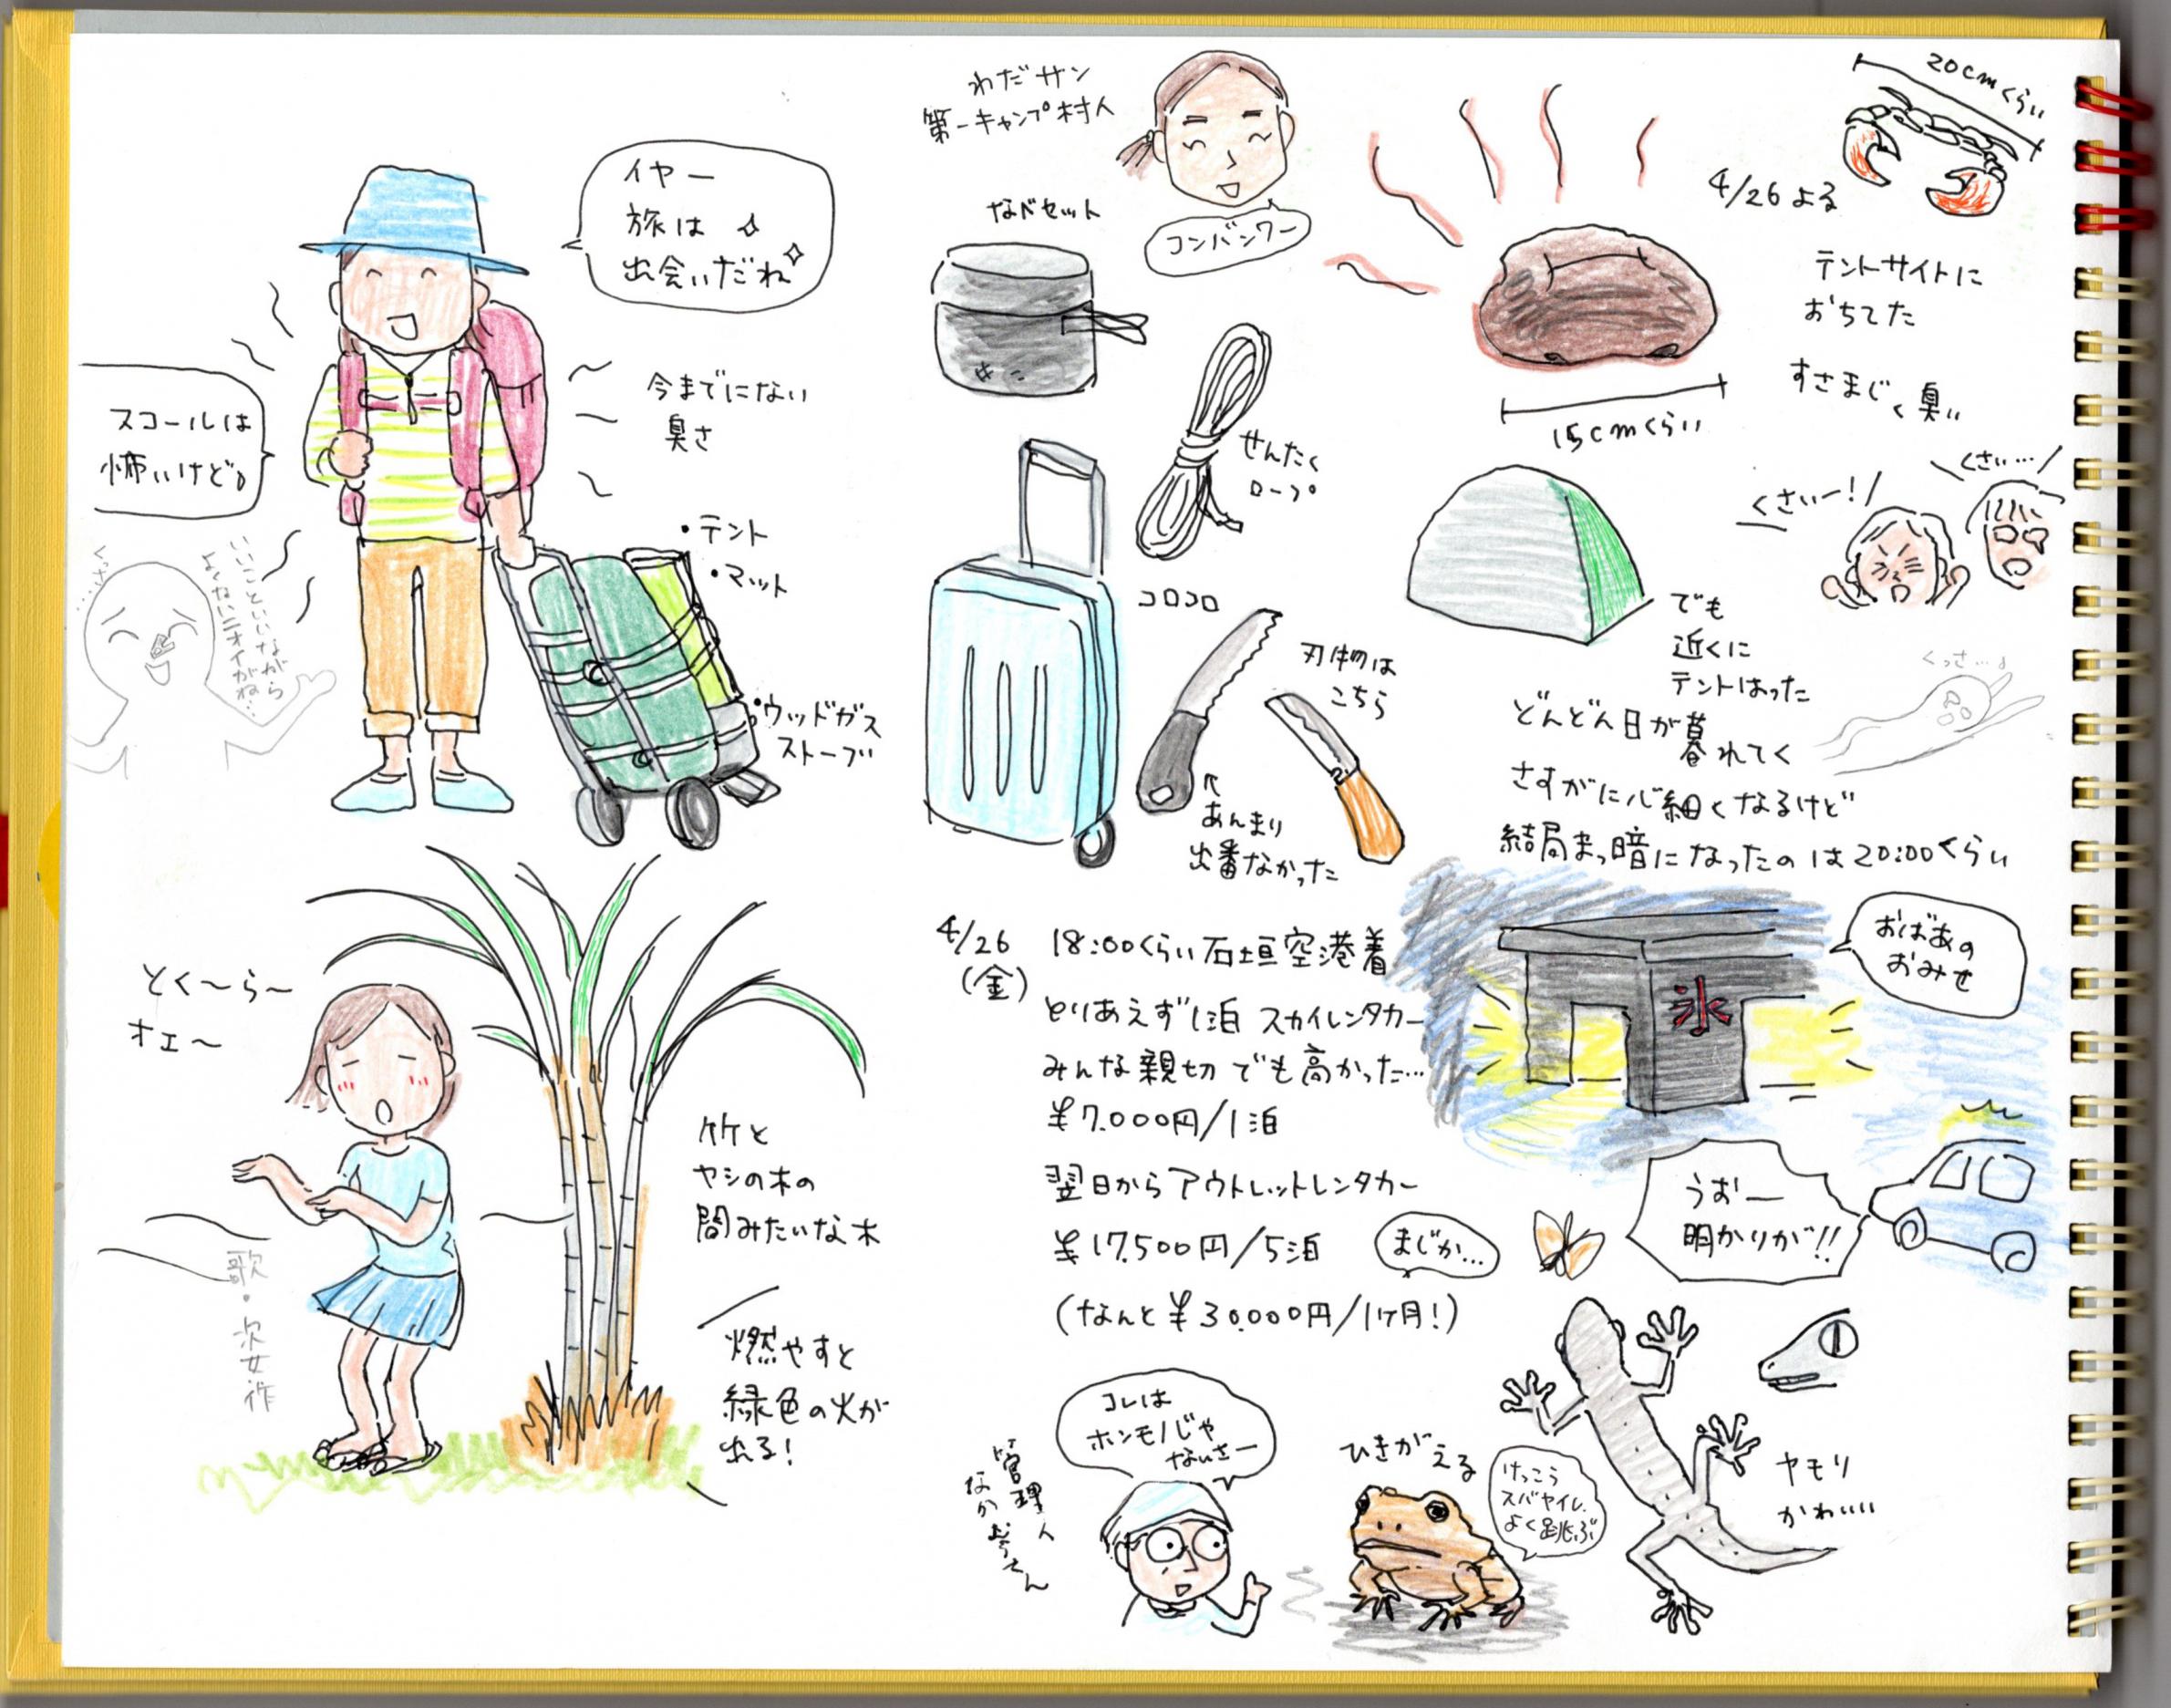 イヤー
旅は
出会いだね
スコールは
怖いけど。
今までにない
臭さ
・テント
・マット
・ウッドガス
ストーブ
くさっ……
いいこといいながら
よくないニオイがね…
とく〜ら〜
オェ〜
歌・次女作
竹と
ヤシの木の
間みたいな木
燃やすと
緑色の火が
出る!
わだサン
第一キャンプ村人
コンバンワー
なべセット
せんたく
ロープ
コロコロ
刃物は
こちら
↑
あんまり
出番なかった
20cmくらい
4/26よる
テントサイトに
おちてた
すさまじく臭い
15cmくらい
くさいー!
くさい…
でも
近くに
テントはった
くっさ…
どんどん日が暮れてく
さすがに心細くなるけど
結局まっ暗になったのは20:00くらい
4/26
(金)
18:00くらい石垣空港着
とりあえず1泊 スカイレンタカー
みんな親切 でも高かった…
¥7.000円/1泊
翌日からアウトレットレンタカー
¥17.500円/5泊
まじか…
(なんと¥30.000円/1ヶ月!)
おばあの
おみせ
氷
うおー
明かりが!!
コレは
ホンモノじゃ
ないさー
管理人
さん
ひきがえる
けっこう
スバヤイし、
よく跳ぶ
ヤモリ
かわいい